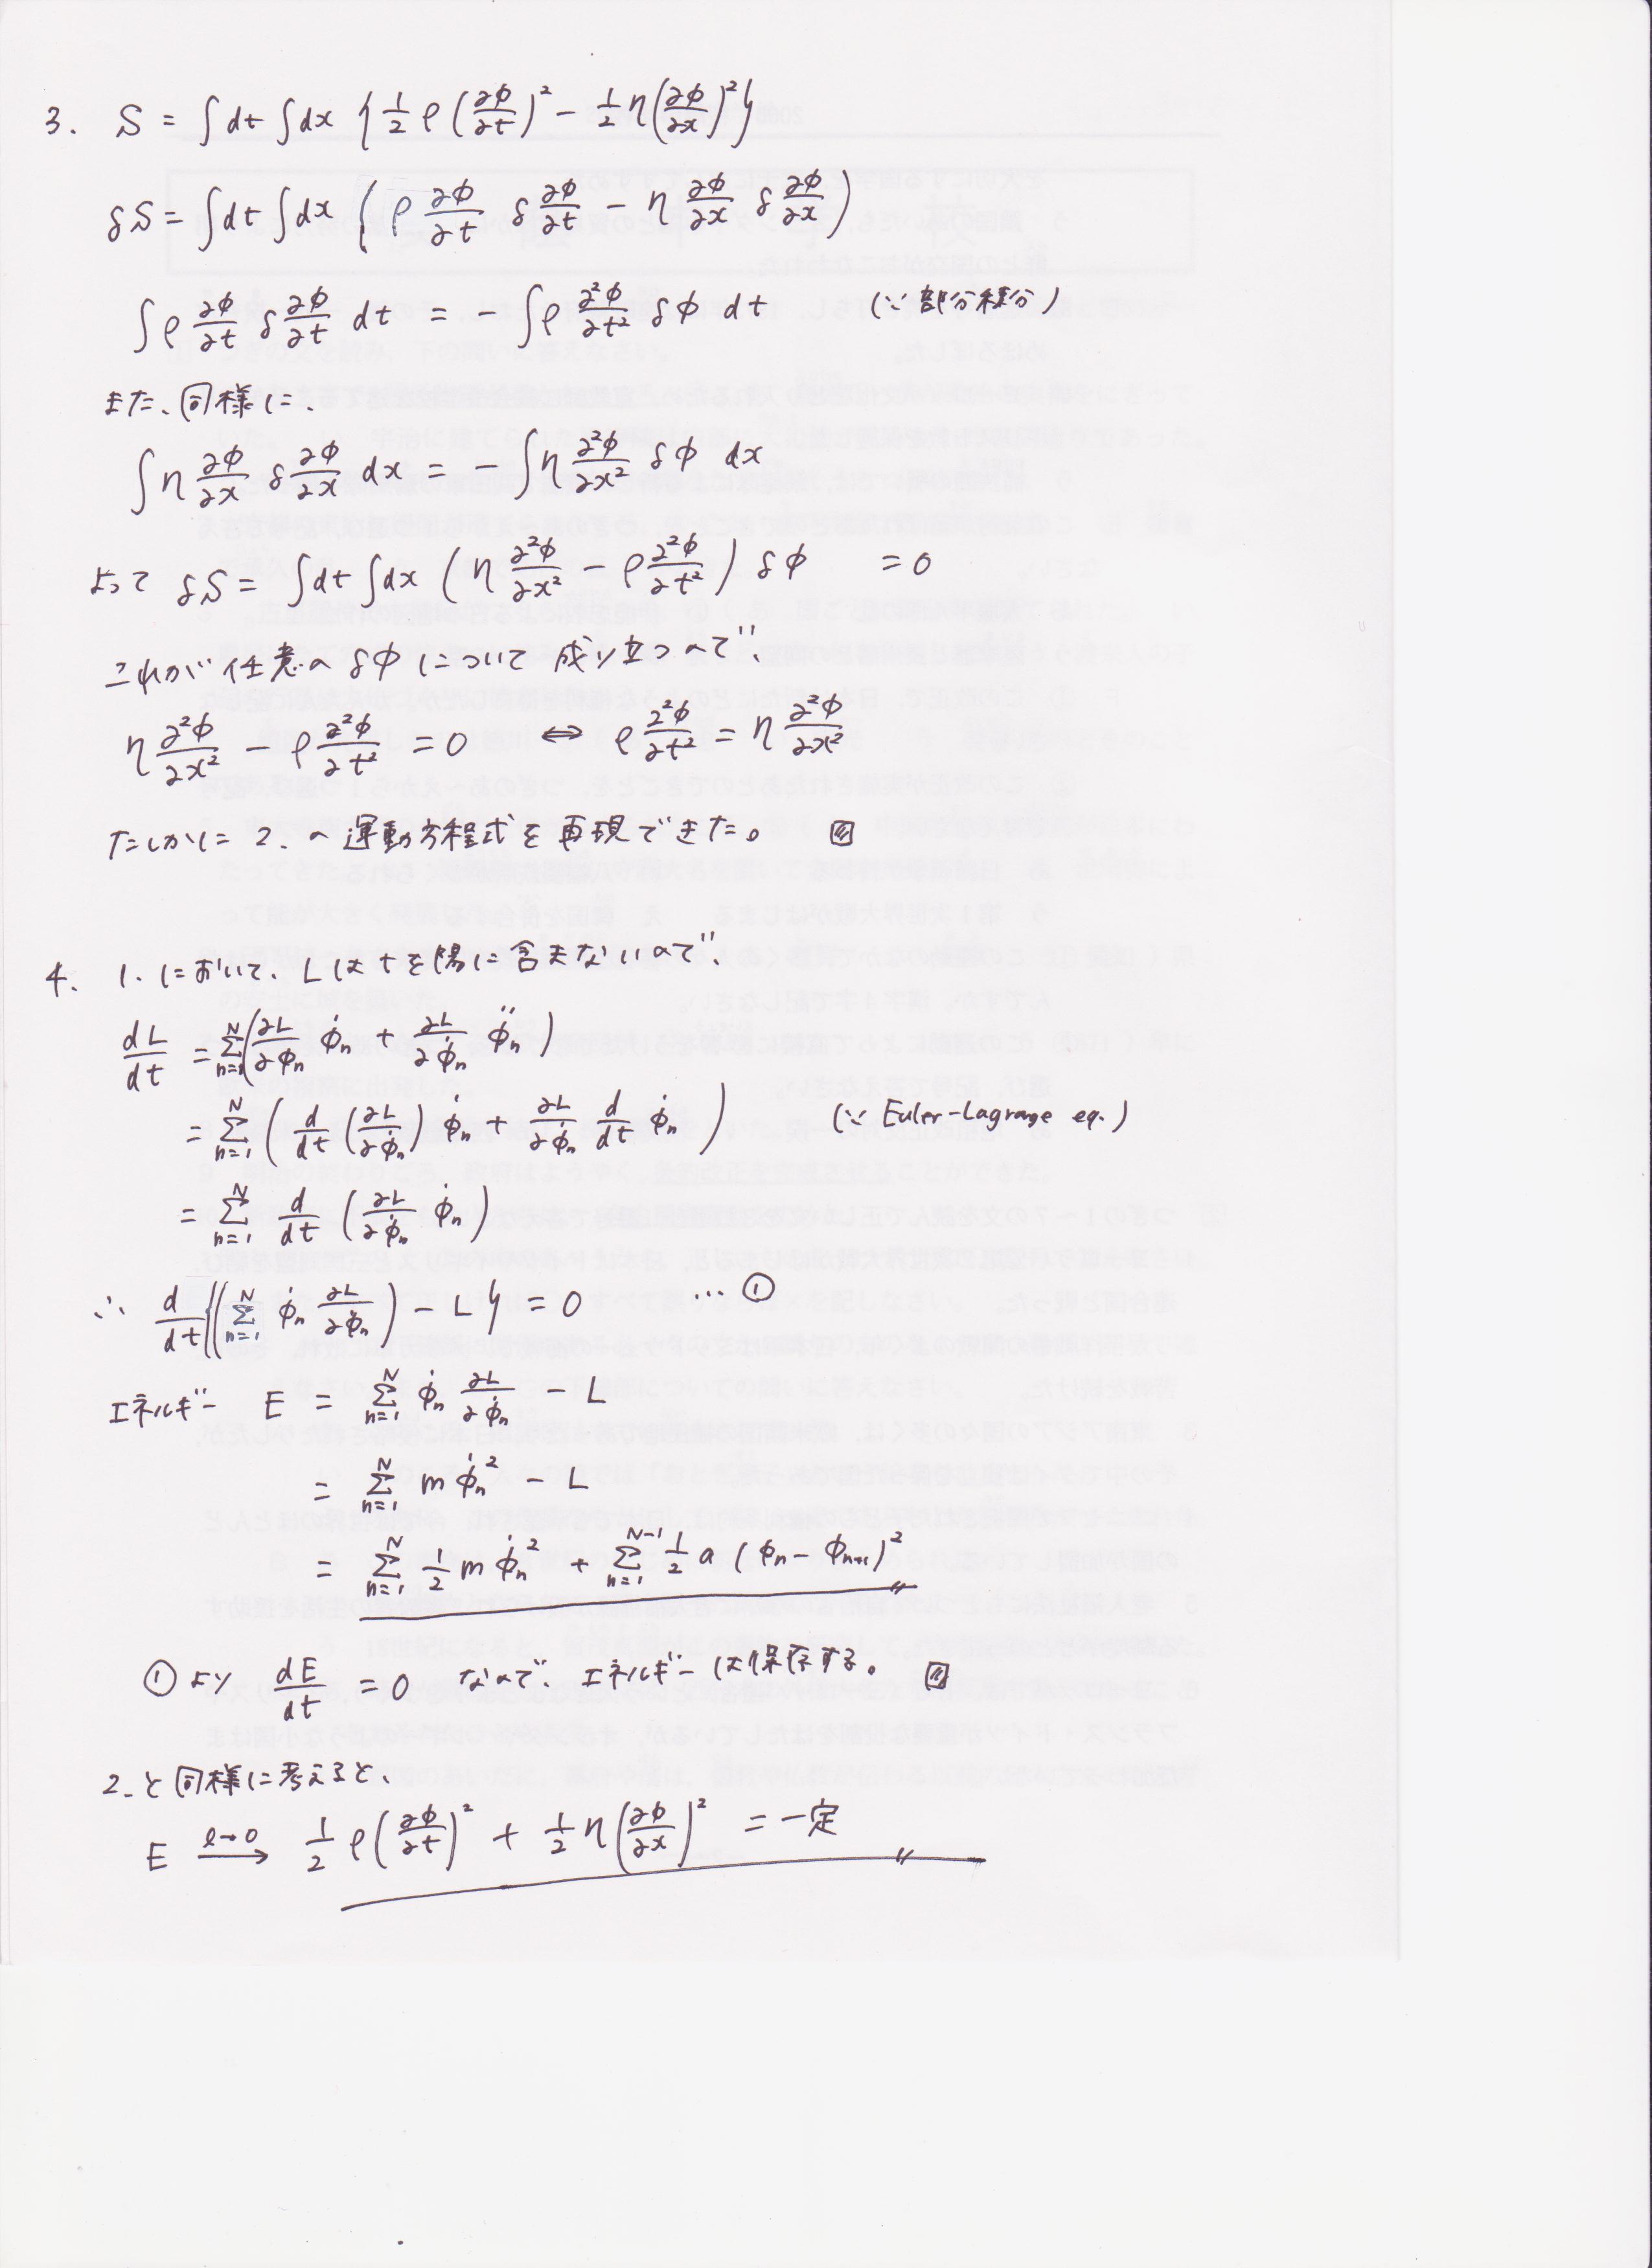 3. S = ∫dt ∫dx { 1/2 ρ (∂φ/∂t)² − 1/2 η (∂φ/∂x)² }
δS = ∫dt ∫dx ( ρ ∂φ/∂t δ ∂φ/∂t − η ∂φ/∂x δ ∂φ/∂x )
∫ρ ∂φ/∂t δ ∂φ/∂t dt = − ∫ρ ∂²φ/∂t² δφ dt (∵ 部分積分)
また、同様に、
∫η ∂φ/∂x δ ∂φ/∂x dx = − ∫η ∂²φ/∂x² δφ dx
よって δS = ∫dt ∫dx ( η ∂²φ/∂x² − ρ ∂²φ/∂t² ) δφ = 0
これが任意の δφ について 成り立つので、
η ∂²φ/∂x² − ρ ∂²φ/∂t² = 0 ⇔ ρ ∂²φ/∂t² = η ∂²φ/∂x²
たしかに 2. の運動方程式を再現できた。
4. 1. において、L は t を陽に含まないので、
dL/dt = Σ_{n=1}^{N} ( ∂L/∂φn φ̇n + ∂L/∂φ̇n φ̈n )
= Σ_{n=1}^{N} ( d/dt (∂L/∂φ̇n) φ̇n + ∂L/∂φ̇n d/dt φ̇n ) (∵ Euler-Lagrange eq.)
= Σ_{n=1}^{N} d/dt ( ∂L/∂φ̇n φ̇n )
∴ d/dt { ( Σ_{n=1}^{N} φ̇n ∂L/∂φ̇n ) − L } = 0 … ①
エネルギー E = Σ_{n=1}^{N} φ̇n ∂L/∂φ̇n − L
= Σ_{n=1}^{N} m φ̇n² − L
= Σ_{n=1}^{N} 1/2 m φ̇n² + Σ_{n=1}^{N-1} 1/2 a (φn − φn+1)²
① より dE/dt = 0 なので エネルギーは保存する。
2. と同様に考えると、
E →(l→0) 1/2 ρ (∂φ/∂t)² + 1/2 η (∂φ/∂x)² = 一定